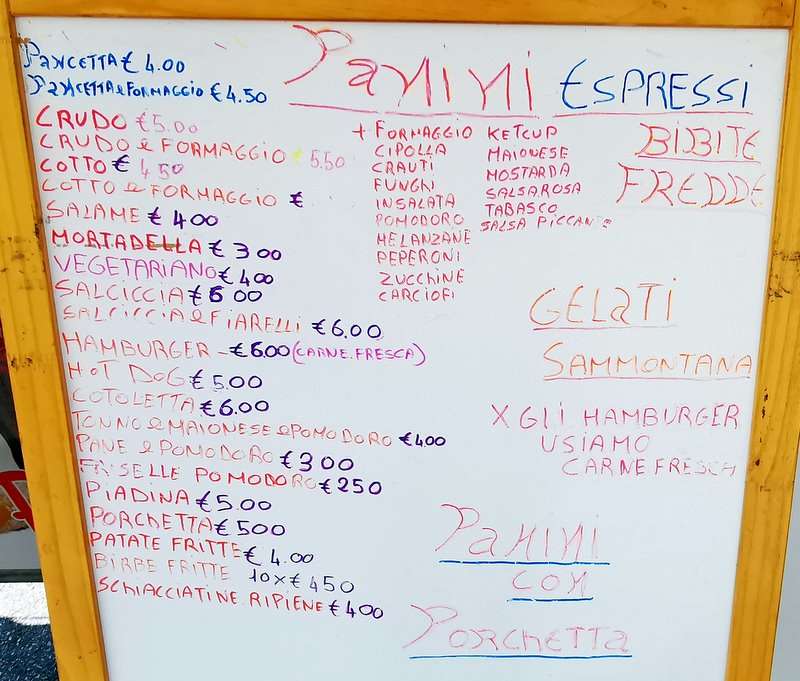 PANCETTA € 4.00
PANCETTA e FORMAGGIO € 4.50
CRUDO € 5.00
CRUDO e FORMAGGIO € 5.50
COTTO € 4.50
COTTO e FORMAGGIO €
SALAME € 4.00
MORTADELLA € 3.00
VEGETARIANO € 4.00
SALCICCIA € 6.00
SALCICCIA e FIARELLI € 6.00
HAMBURGER - € 6.00 (CARNE FRESCA)
HOT DOG € 5.00
COTOLETTA € 6.00
TONNO e MAIONESE e POMODORO € 400
PANE e POMODORO € 300
FRISELLE POMODORO € 250
PIADINA € 5.00
PORCHETTA € 500
PATATE FRITTE € 4.00
BIRBE FRITTE 10x € 450
SCHIACCIATINE RIPIENE € 400
PANINI ESPRESSI
+ FORMAGGIO
CIPOLLA
CRAUTI
FUNGHI
INSALATA
POMODORO
MELANZANE
PEPERONI
ZUCCHINE
CARCIOFI
KETCUP
MAIONESE
MOSTARDA
SALSA ROSA
TABASCO
SALSA PICCANTE
BIBITE
FREDDE
GELATI
SAMMONTANA
X GLI HAMBURGER
USIAMO
CARNE FRESCA
PANINI
CON
PORCHETTA